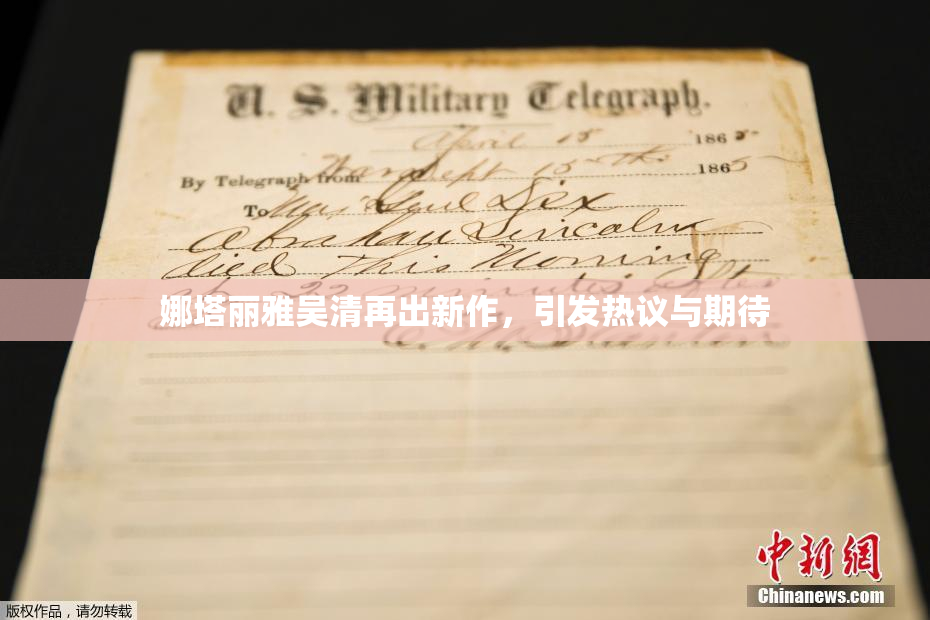 U. S. Military Telegraph.
April 15 1865
By Telegraph from War Dept 15th 1865
To Maj Genl Dix
Abraham Lincoln
died This Morning
at 22 minutes after
娜塔丽雅吴清再出新作，引发热议与期待
中新网
Chinanews.com
版权作品，请勿转载